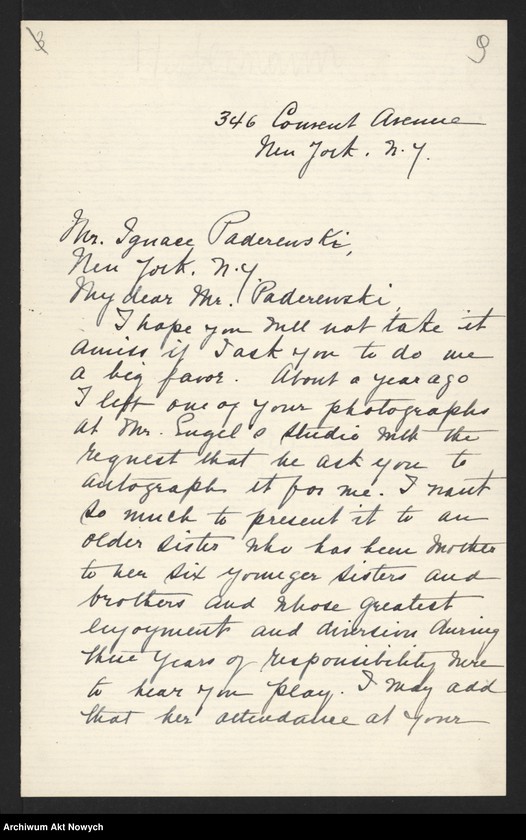 3
9
346 Convent Avenue
New York. N.Y.
Mr. Ignace Paderewski,
New York. N.Y.
My dear Mr. Paderewski,
I hope you will not take it
amiss if I ask you to do me
a big favor. About a year ago
I left one of your photographs
at Mr. Engel's studio with the
request that he ask you to
autograph it for me. I want
so much to present it to an
older sister who has been mother
to her six younger sisters and
brothers and whose greatest
enjoyment and diversion during
these years of responsibility were
to hear you play. I may add
that her attendance at your
Archiwum Akt Nowych